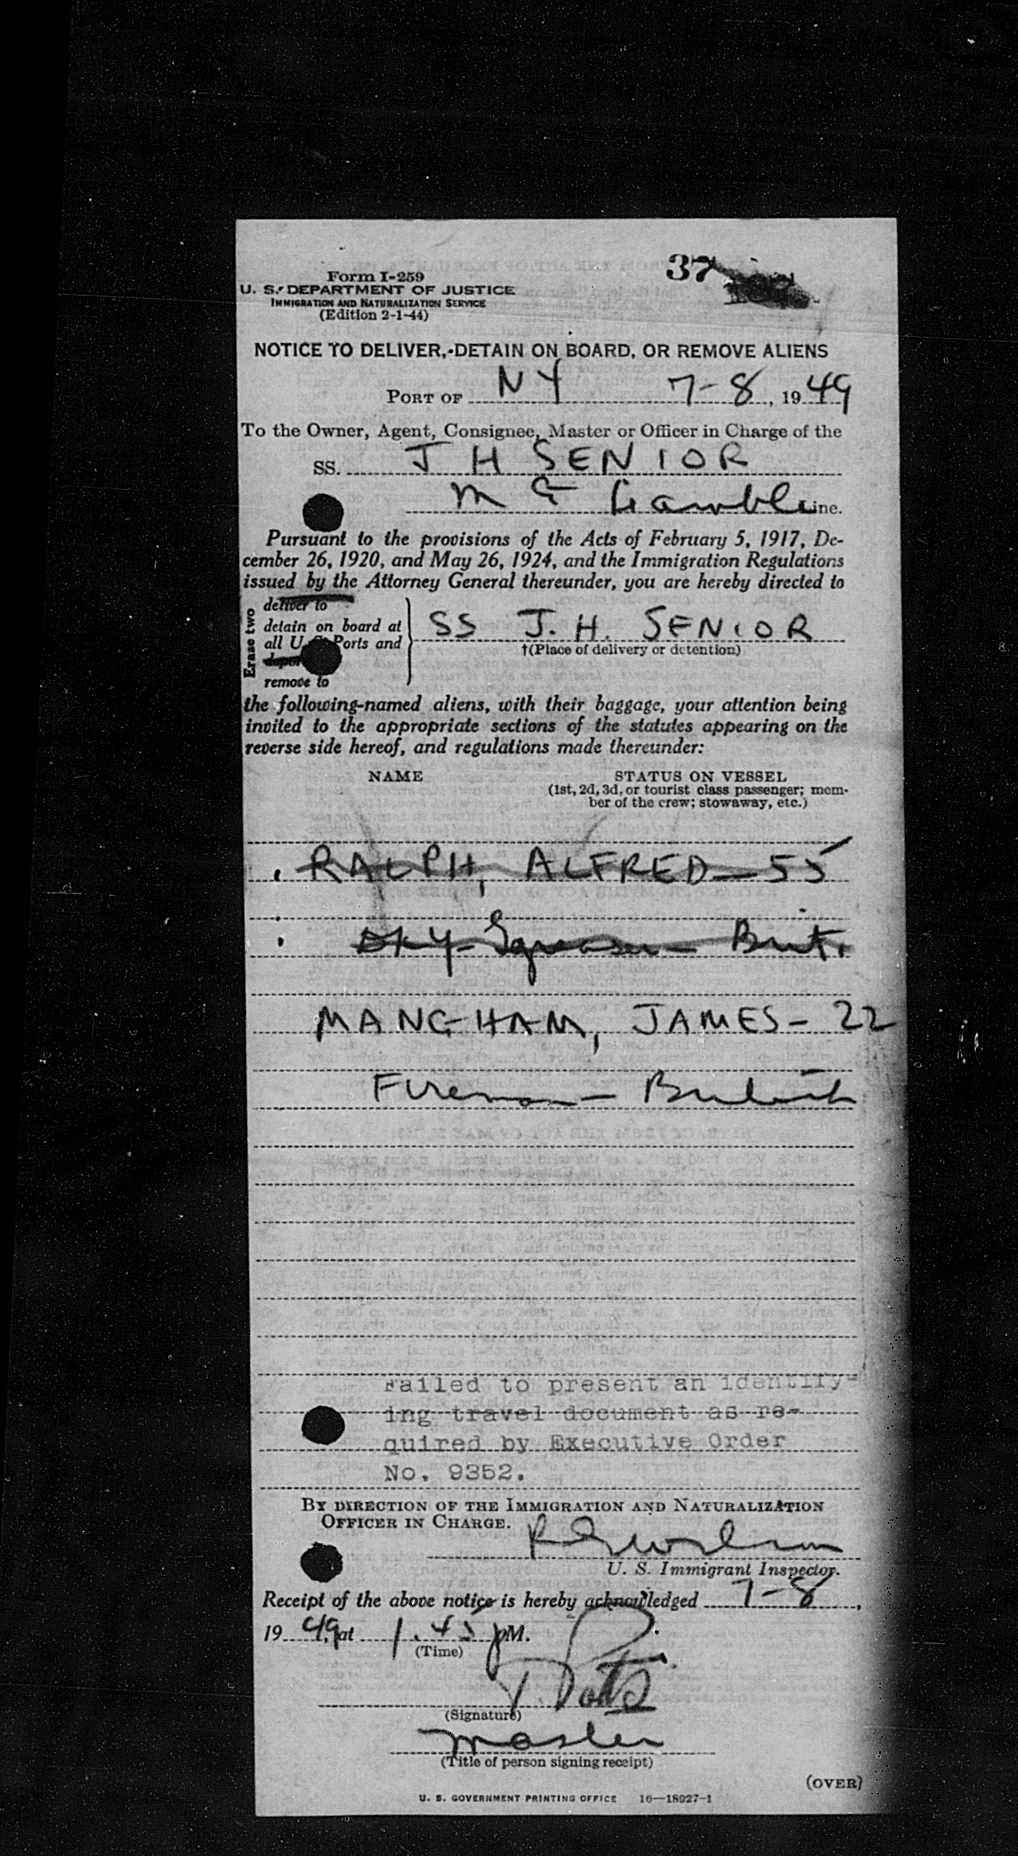 37
Form I-259
U. S. DEPARTMENT OF JUSTICE
IMMIGRATION AND NATURALIZATION SERVICE
(Edition 2-1-44)
NOTICE TO DELIVER, DETAIN ON BOARD, OR REMOVE ALIENS
PORT OF NY 7-8, 1949
To the Owner, Agent, Consignee, Master or Officer in Charge of the
SS. J H SENIOR
Line.
Pursuant to the provisions of the Acts of February 5, 1917, De-
cember 26, 1920, and May 26, 1924, and the Immigration Regulations
issued by the Attorney General thereunder, you are hereby directed to
Erase two
deliver to
detain on board at
all U. S. Ports and
deport
remove to
SS J. H. SENIOR
†(Place of delivery or detention)
the following-named aliens, with their baggage, your attention being
invited to the appropriate sections of the statutes appearing on the
reverse side hereof, and regulations made thereunder:
NAME STATUS ON VESSEL
(1st, 2d, 3d, or tourist class passenger; mem-
ber of the crew; stowaway, etc.)
RALPH, ALFRED - 55
Dky-Greaser - Brit.
MANGHAM, JAMES - 22
Fireman - British
Failed to present an identify-
ing travel document as re-
quired by Executive Order
No. 9352.
BY DIRECTION OF THE IMMIGRATION AND NATURALIZATION
OFFICER IN CHARGE.
U. S. Immigrant Inspector.
Receipt of the above notice is hereby acknowledged 7-8,
1949, at 1.45 pM.
(Time)
Potts
(Signature)
Master
(Title of person signing receipt)
(OVER)
U. S. GOVERNMENT PRINTING OFFICE 16—18927-1